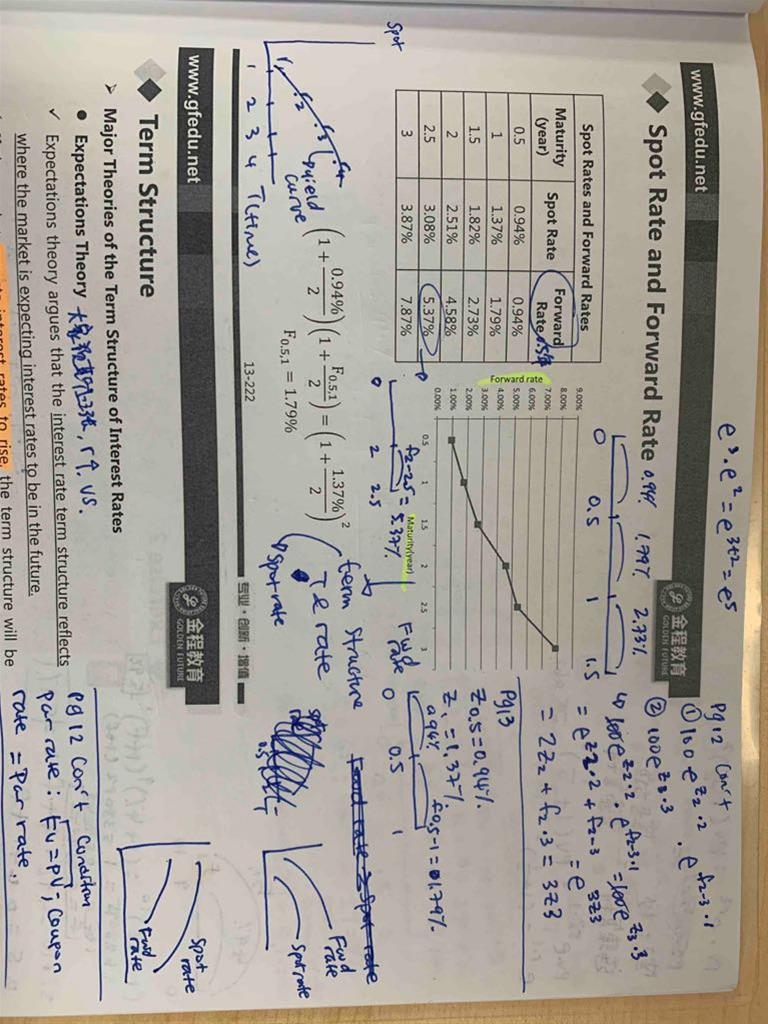 e³·e² = e³⁺² = e⁵
www.gfedu.net
金程教育
GOLDEN FUTURE
Spot Rate and Forward Rate
0.94% 1.79% 2.73%
0 0.5 1 1.5
Spot Rates and Forward Rates
Maturity (year) Spot Rate Forward Rate
0.5 0.94% 0.94%
1 1.37% 1.79%
1.5 1.82% 2.73%
2 2.51% 4.58%
2.5 3.08% 5.37%
3 3.87% 7.87%
Forward rate
9.00%
8.00%
7.00%
6.00%
5.00%
4.00%
3.00%
2.00%
1.00%
0.00%
0.5 1 1.5 2 2.5 3
Maturity(year)
f2-2.5 = 5.37%
0 2 2.5
Spot
f1 f2 f3 f4
yield
curve
1 2 3 4 T(time)
(1 + 0.94%/2)(1 + F0.5,1/2) = (1 + 1.37%/2)²
F0.5,1 = 1.79%
term structure
T & rate
spot rate
13-222
专业·创新·增值
Pg12 Con't
① 100·e^z2·2 · e^f2-3·1
② 100e^z3·3
↳ 100e^z2·2 · e^f2-3·1 = 100e^z3·3
= e^z2·2 + f2-3 = e^3z3
= 2z2 + f2-3 = 3z3
Pg13
Z0.5 = 0.94%
Z1 = 1.37%
0.94% f0.5-1 = 1.79%
0 0.5 1
Fwd
rate
Fwd rate
Spot rate
Spot
rate
Fwd
rate
www.gfedu.net
金程教育
GOLDEN FUTURE
Term Structure
➢ Major Theories of the Term Structure of Interest Rates
● Expectations Theory
r↑. vs.
✓ Expectations theory argues that the interest rate term structure reflects
where the market is expecting interest rates to be in the future.
interest rates to rise, the term structure will be
Pg12 Con't Condition
Par rate: FV = PV; Coupon
rate = Par rate.